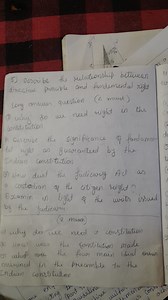 Describe the relationship between
directive principle and fundamental right
long answer question (5 mark)
why do we need right in the
constitution
the significance of fundame
right as guaranteed by the
Indian constitution
How dual the judiciary Act as
custodian of the citizen right
in light of the writs issued
by the judiciary
(2 mark)
why do we need a constitution
how was the constitution made
what are the main ideal
in the preamble to the
Indian constitution